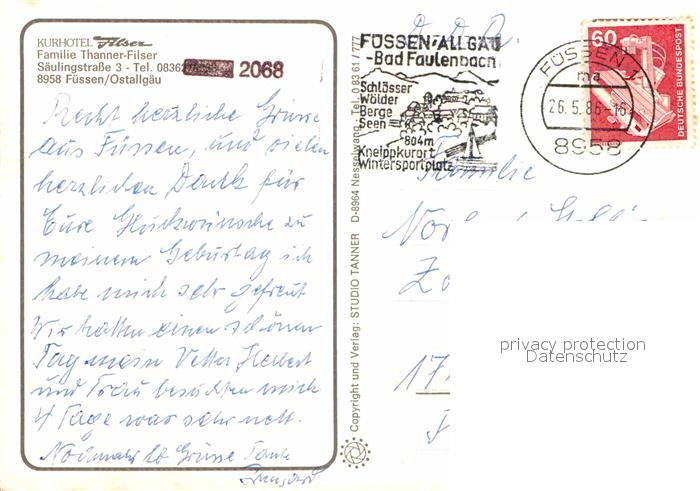 KURHOTEL Filser
Familie Thanner-Filser
Säulingstraße 3 - Tel. 08362 2068
8958 Füssen/Ostallgäu
Recht herzliche Grüsse
aus Füssen, und vielen
herzlichen Dank für
Eure Glückwünsche zu
meinem Geburtag ich
habe mich sehr gefreut
Wir hatten einen schönen
Tag mein Vetter Herbert
und Frau besuchten mich
4 Tage war sehr nett.
Nochmals lb Grüsse Tante
Irmgard
Copyright und Verlag: STUDIO TANNER D-8964 Nesselwang, Tel. 0 83 61 / 777
D.D.R.
FÜSSEN/ALLGÄU
-Bad Faulenbach-
Schlösser
Wälder
Berge
Seen
804m
Kneippkurort
Wintersportplatz
FÜSSEN 1
ma
26.5.86-16
8958
60
DEUTSCHE BUNDESPOST
Familie
17
privacy protection
Datenschutz